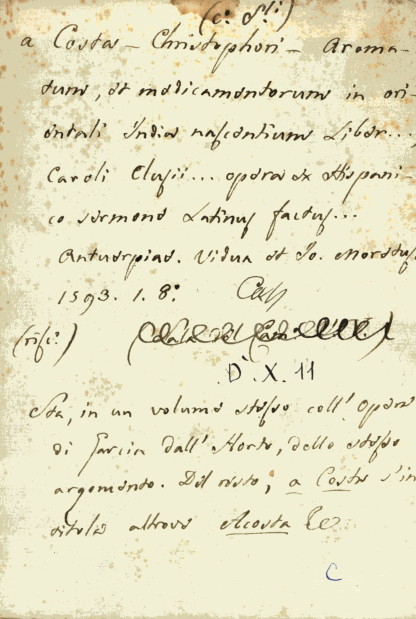 (c. S.i)
a Costa - Christophori - Aroma-
tum, et medicamentorum in ori-
entali India nascentium Liber...,
Caroli Clusii... opera ex Hispani-
co sermone Latinus factus...
Antuerpiae. Vidua et Jo. Moretus
1593. 1. 8.°
(risc.)
D. X. 11
Sta, in un volume stesso coll' Opera
di Garcia dall' Horto, dello stesso
argomento. Del resto, a Costa s'in
titola altrove Acosta
C